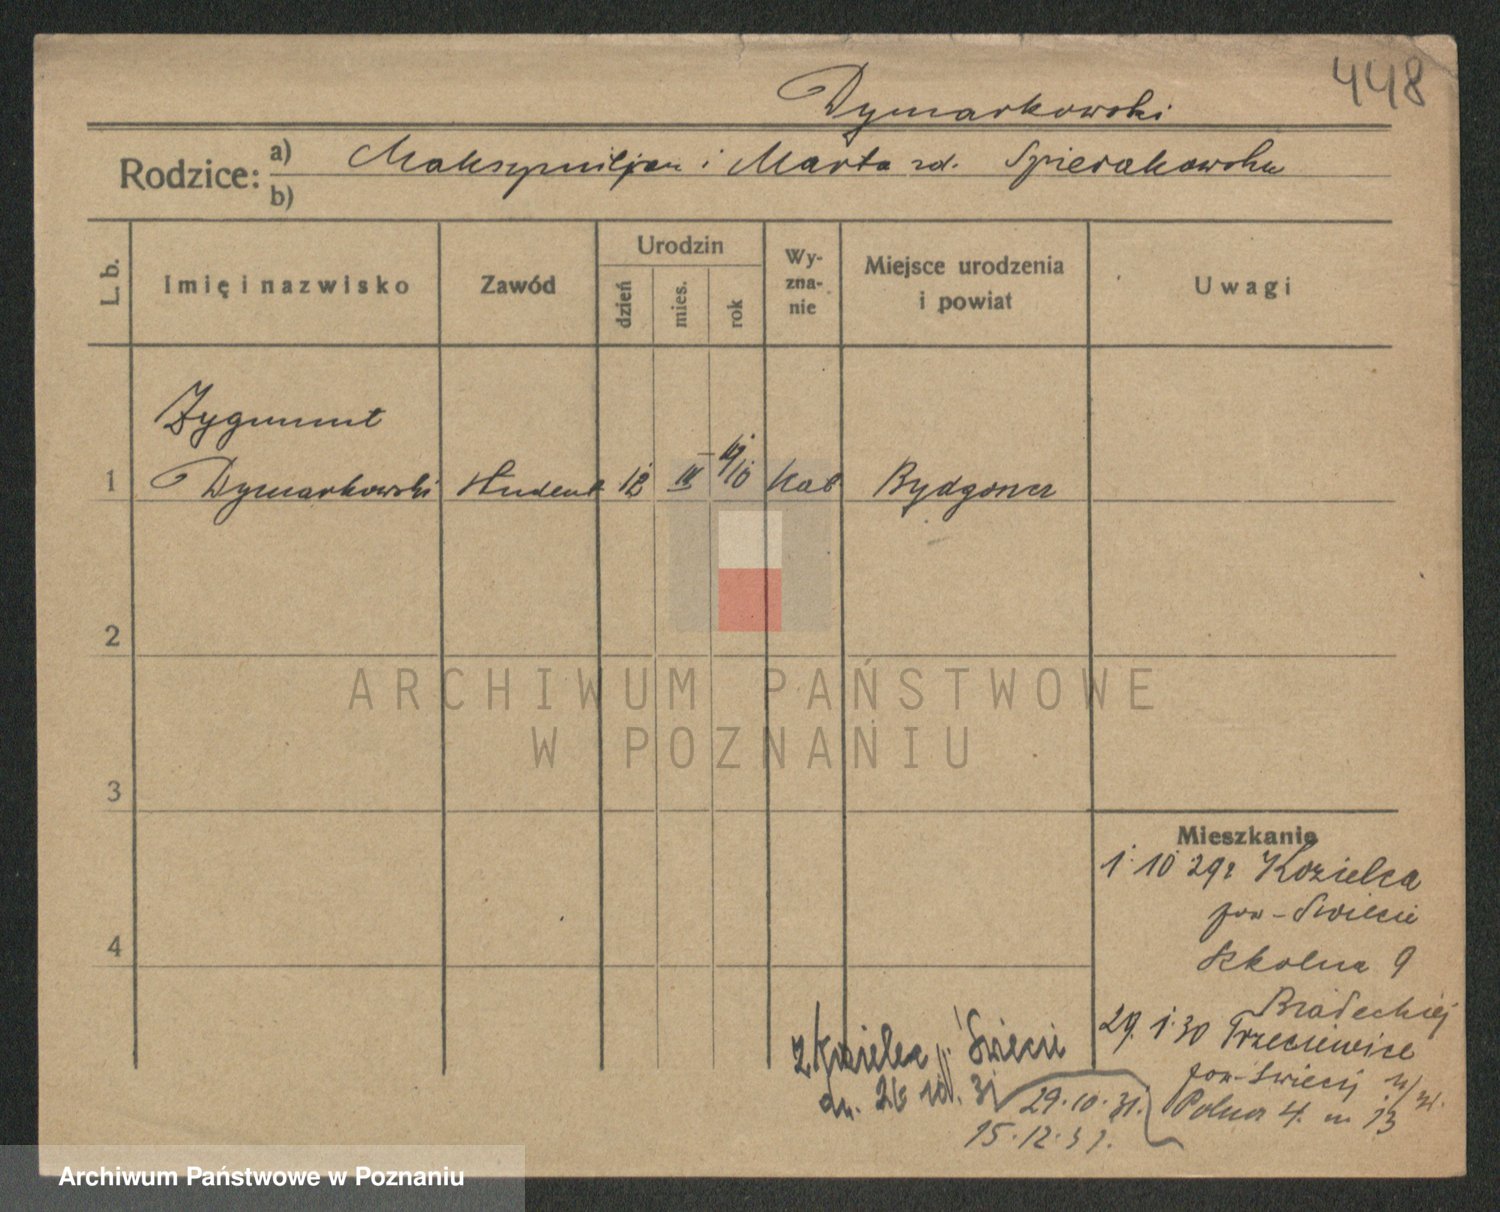 448
Dymarkowski
Rodzice: a) Maksymiljan i Marta zd. Spierakowska
b)
L. b.
Imię i nazwisko
Zawód
Urodzin
dzień
mies.
rok
Wy-
zna-
nie
Miejsce urodzenia
i powiat
Uwagi
Zygmunt
1 Dymarkowski Student 12 IV 19/10 Kat Bydgoszcz
2
ARCHIWUM PAŃSTWOWE
W POZNANIU
3
4
Mieszkanie
1. 10 29r Kozielca
pow - Świecie
Szkolna 9
29. 1. 30 Trzeciewice
pow. Świecie n/W.
Polna 4. m 13
z Kozielca Świecie
dn. 26 31
29. 10. 31.
15. 12. 31.
Archiwum Państwowe w Poznaniu